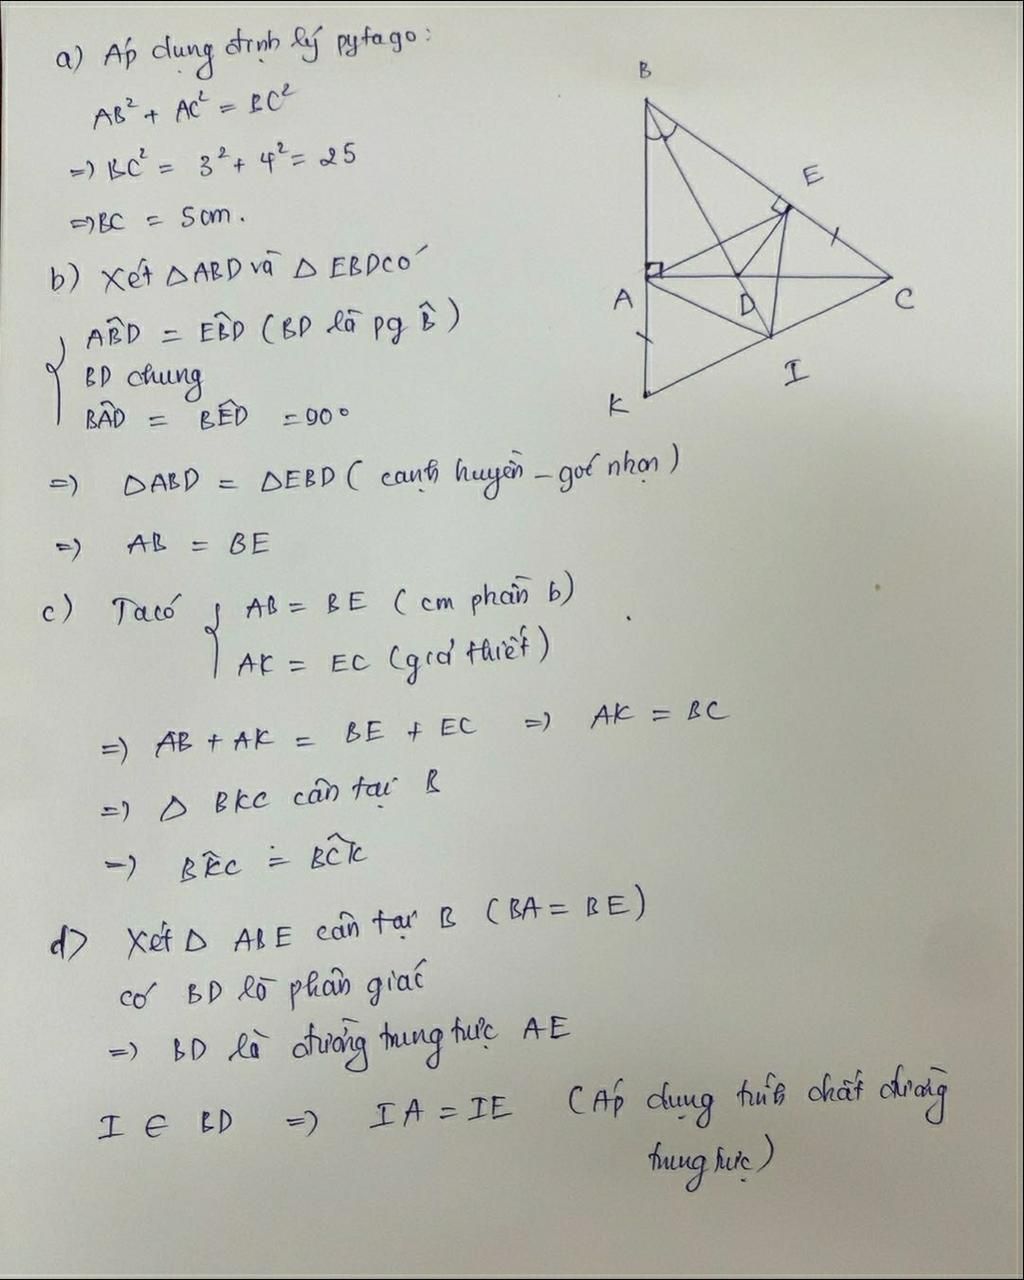 a) Áp dụng định lý pytago:
AB² + AC² = BC²
=) BC² = 3² + 4² = 25
=) BC = 5cm.
b) Xét △ABD và △ EBD có
AB̂D = EB̂D (BD là pg B̂)
BD chung
BÂD = BÊD = 90°
=) △ABD = △EBD ( cạnh huyền - góc nhọn)
=) AB = BE
c) Ta có { AB = BE ( cm phần b)
AK = EC (giả thiết)
=) AB + AK = BE + EC =) AK = BC
=) △ BKC cân tại B
=) BK̂C = BĈK
d) Xét △ ABE cân tại B (BA = BE)
có BD là phân giác
=) BD là đường trung trực AE
I ∈ BD =) IA = IE (Áp dụng tính chất đường
trung trực)
B
E
A
D
C
I
K